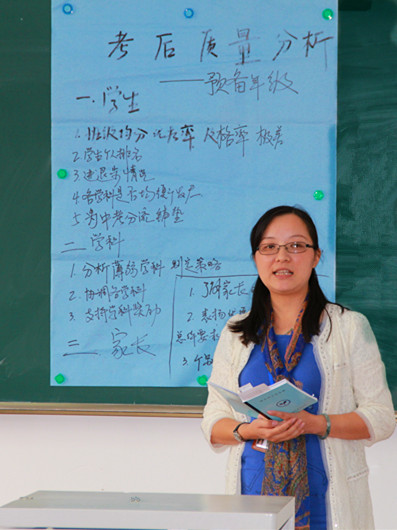 考后质量分析
——预备年级
一.学生
1.班级均分 优秀率 及格率 极差
2.学生个人排名
3.进退步情况
4.各学科是否均衡
5.考中考分流
二 学科
1.分析薄弱学科 制定策略
2.协调各学科
3.支持学科活动
三 家长
1.了解家长
2.表扬
3.个别